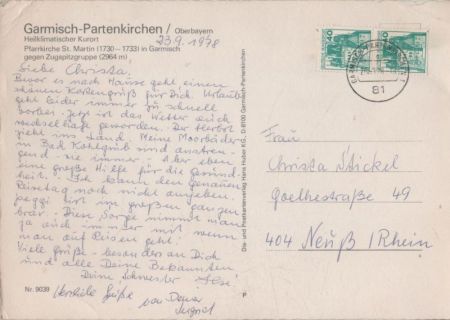 Garmisch-Partenkirchen / Oberbayern
Heilklimatischer Kurort
Pfarrkirche St. Martin (1730 – 1733) in Garmisch
gegen Zugspitzgruppe (2964 m)
23.9.1978
Liebe Christa.
Bevor es nach Hause geht einen
schönen Kartengruß für Dich. Urlaub
geht leider immer zu schnell
vorbei. Jetzt ist das Wetter auch
wechselhaft geworden. Der Herbst
zieht ins Land. Meine Moorbäder
in Bad Kohlgrub sind anstren-
gend - wie immer. Aber eben
eine große Hilfe für die Gesund-
heit. Ich kann den genauen
Reisetag noch nicht angeben.
ist im großen ganzen
brav. Diese Sorge nimmt man
ja auch immer mit wenn
man auf Reisen geht.
Viele Grüße - besonders an Dich
und alle Deine Bekannten
Deine Schwester Ilse
Herzliche Grüße von
Nr. 9039
P
Die- und Postkartenverlag Hans Huber KG, D-8100 Garmisch-Partenkirchen
40
40
81
Frau
Christa
Goethestraße 49
404 Neuß / Rhein